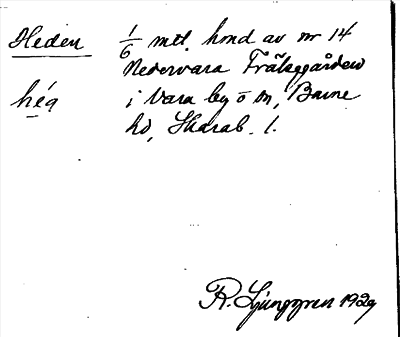 Heden 1/6 mtl. hmd av nr 14
Nedervara Frälsegården
héa i Vara by o sn, Barne
hd, Skarab. l.
R. Ljunggren 1929